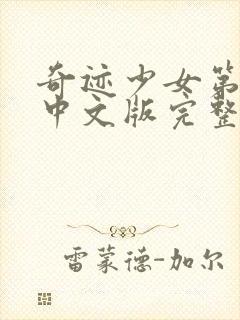 奇迹少女第
中文版完整
雷蒙德-加尔